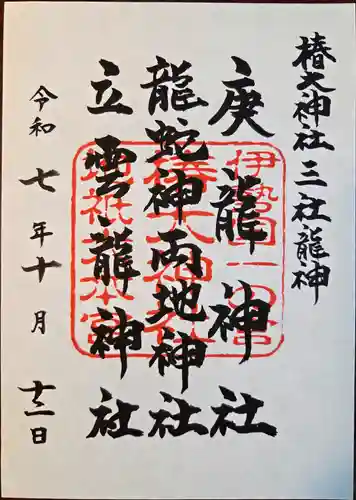 椿大神社三社龍神
庚龍神社
龍蛇神両地神社
立雲龍神社
令和七年十月十二日
伊勢国一之宮
椿大神社
地祇大本宮